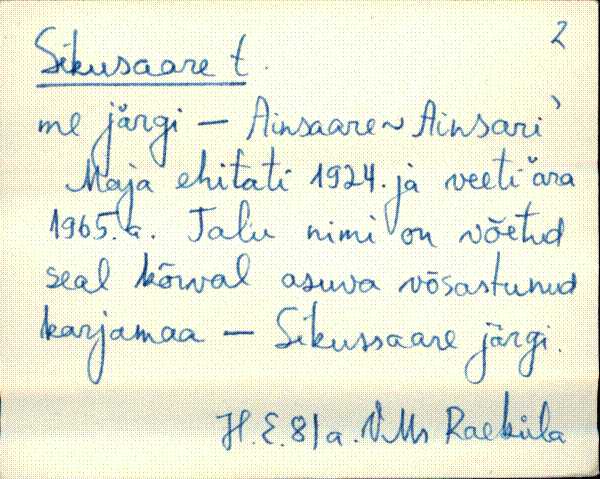 2
Sikusaare t.
me järgi — Ainsaare ~ Ainsari`
Maja ehitati 1924. ja veeti ära
1965. a. Talu nimi on võetud
seal kõrval asuva võsastunud
karjamaa — Sikussaare järgi.
H. E. 81 a. VMr Raeküla